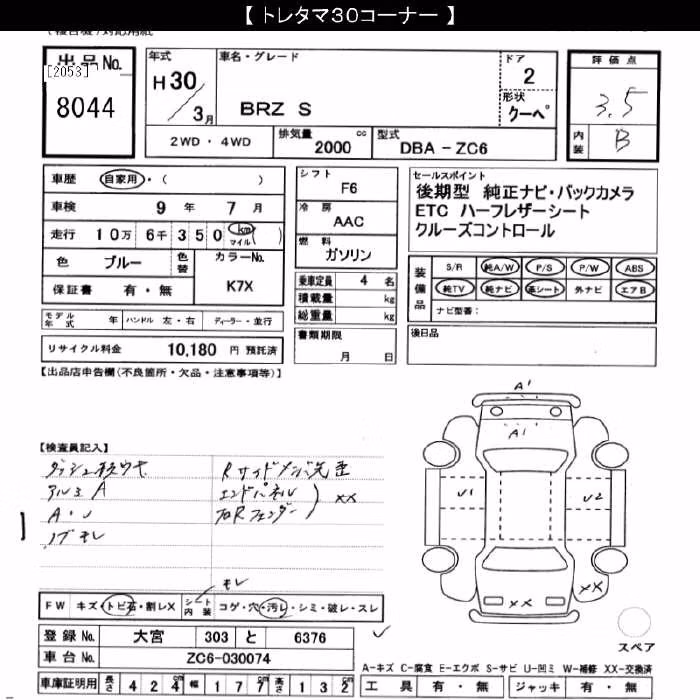 【 トレタマ30コーナー 】
出品No.
[2053]
8044
年式
H 30
3月
車名・グレード
BRZ S
ドア
2
形状
クーペ
評価点
3.5
内装
B
2WD ・ 4WD
排気量
2000 cc
型式
DBA － ZC6
車歴 自家用・( )
車検 9 年 7 月
走行 10万 6千 350 km マイル ( )
色 ブルー 色替 カラーNo. K7X
保証書 有 ・ 無
シフト F6
冷房 AAC
燃料 ガソリン
乗車定員 4 名
積載量 kg
総重量 kg
セールスポイント
後期型 純正ナビ・バックカメラ
ETC ハーフレザーシート
クルーズコントロール
装備品
S/R 純A/W P/S P/W ABS
純TV 純ナビ 革シート 外ナビ エアB
ナビ型番：
モデル年式 年 ハンドル 左・右 ディーラー・並行
リサイクル料金 10,180 円 預託済
書類期限
月 日
後日品
【出品店申告欄(不良箇所・欠品・注意事項等)】
【検査員記入】
アルミ A
エンドパネル
XX
A1
A1
U1
U2
XX
XX
FW キズ・トビ石・割レX シート内装 コゲ・穴・汚レ・シミ・破レ・スレ
登録 No. 大宮 303 と 6376
車台 No. ZC6-030074
スペア
A-キズ C-腐食 E-エクボ S-サビ U-凹ミ W-補修 XX-交換済
車庫証明用 長さ 424 cm 幅 177 cm 高さ 132 cm
工具 有 ・ 無 ジャッキ 有 ・ 無